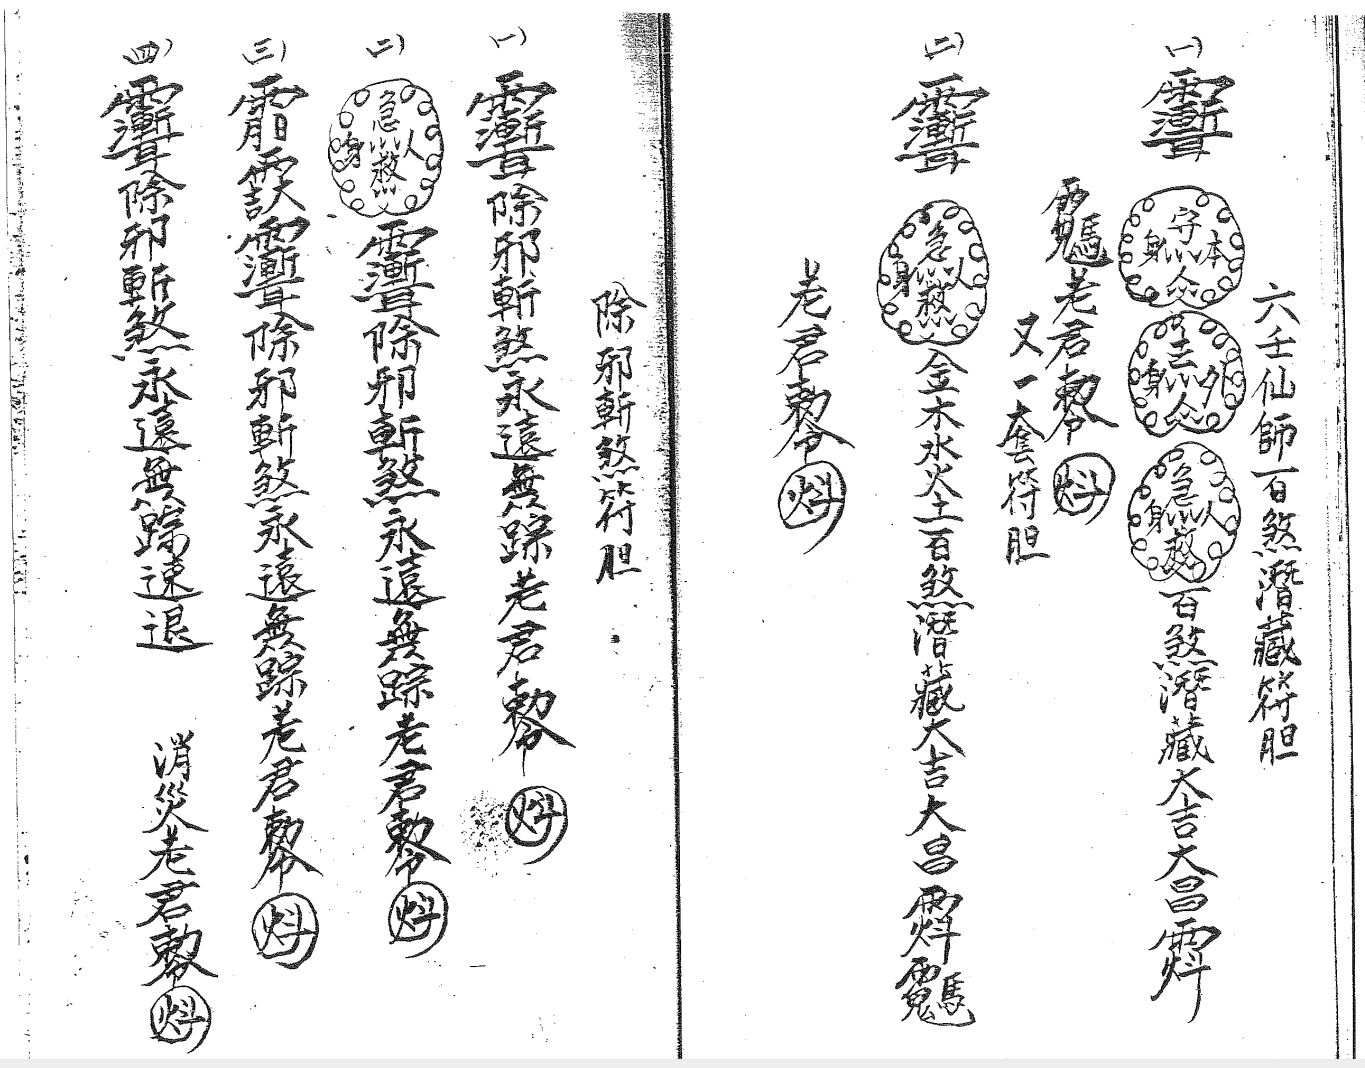 六壬仙師百煞潛藏符胆
一)
本守身
外身
人急身救
百煞潛藏大吉大昌
老君敕令
又一套符胆
二)
人急身救
金木水火土百煞潛藏大吉大昌
老君敕令
除邪斬煞符胆
一)
除邪斬煞永遠無踪老君敕令
二)
人急身救
除邪斬煞永遠無踪老君敕令
三)
除邪斬煞永遠無踪老君敕令
四)
除邪斬煞永遠無踪速退
消災老君敕令